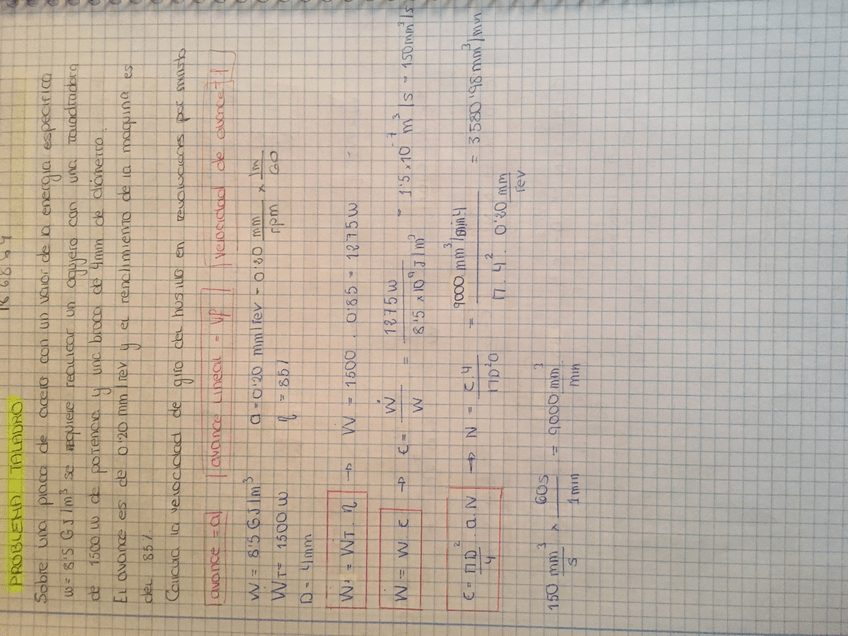 PROBLEMA TALADRO
Sobre una placa de acero con un valor de la energia especifica
w = 8'5 GJ/m³ se requiere realizar un agujero con una taladradora
de 1500 W de potencia y una broca de 4mm de diámetro.
El avance es de 0'20 mm/rev y el rendimiento de la maquina es
del 85%
Calcula la velocidad de giro del husillo en revoluciones por minuto
avance = a avance lineal = Vp velocidad de avance = f
W = 8'5 GJ/m³ a = 0'20 mm/rev = 0'20 mm/rpm × 1m/60
WT = 1500 W η = 85%
D = 4mm
Ẇ = WT · η → Ẇ = 1500 · 0'85 = 1275 W
Ẇ = W · C → C = Ẇ/W = 1275 W / 8'5 × 10⁹ J/m³ = 1'5 × 10⁻⁷ m³/s = 150 mm³/s
C = ΠD²/4 · a · N → N = C · 4 / ΠD²a = 9000 mm³/min · 4 / Π · 4² · 0'20 mm/rev = 3580'98 mm³/min
150 mm³/s × 60s/1min = 9000 mm³/min